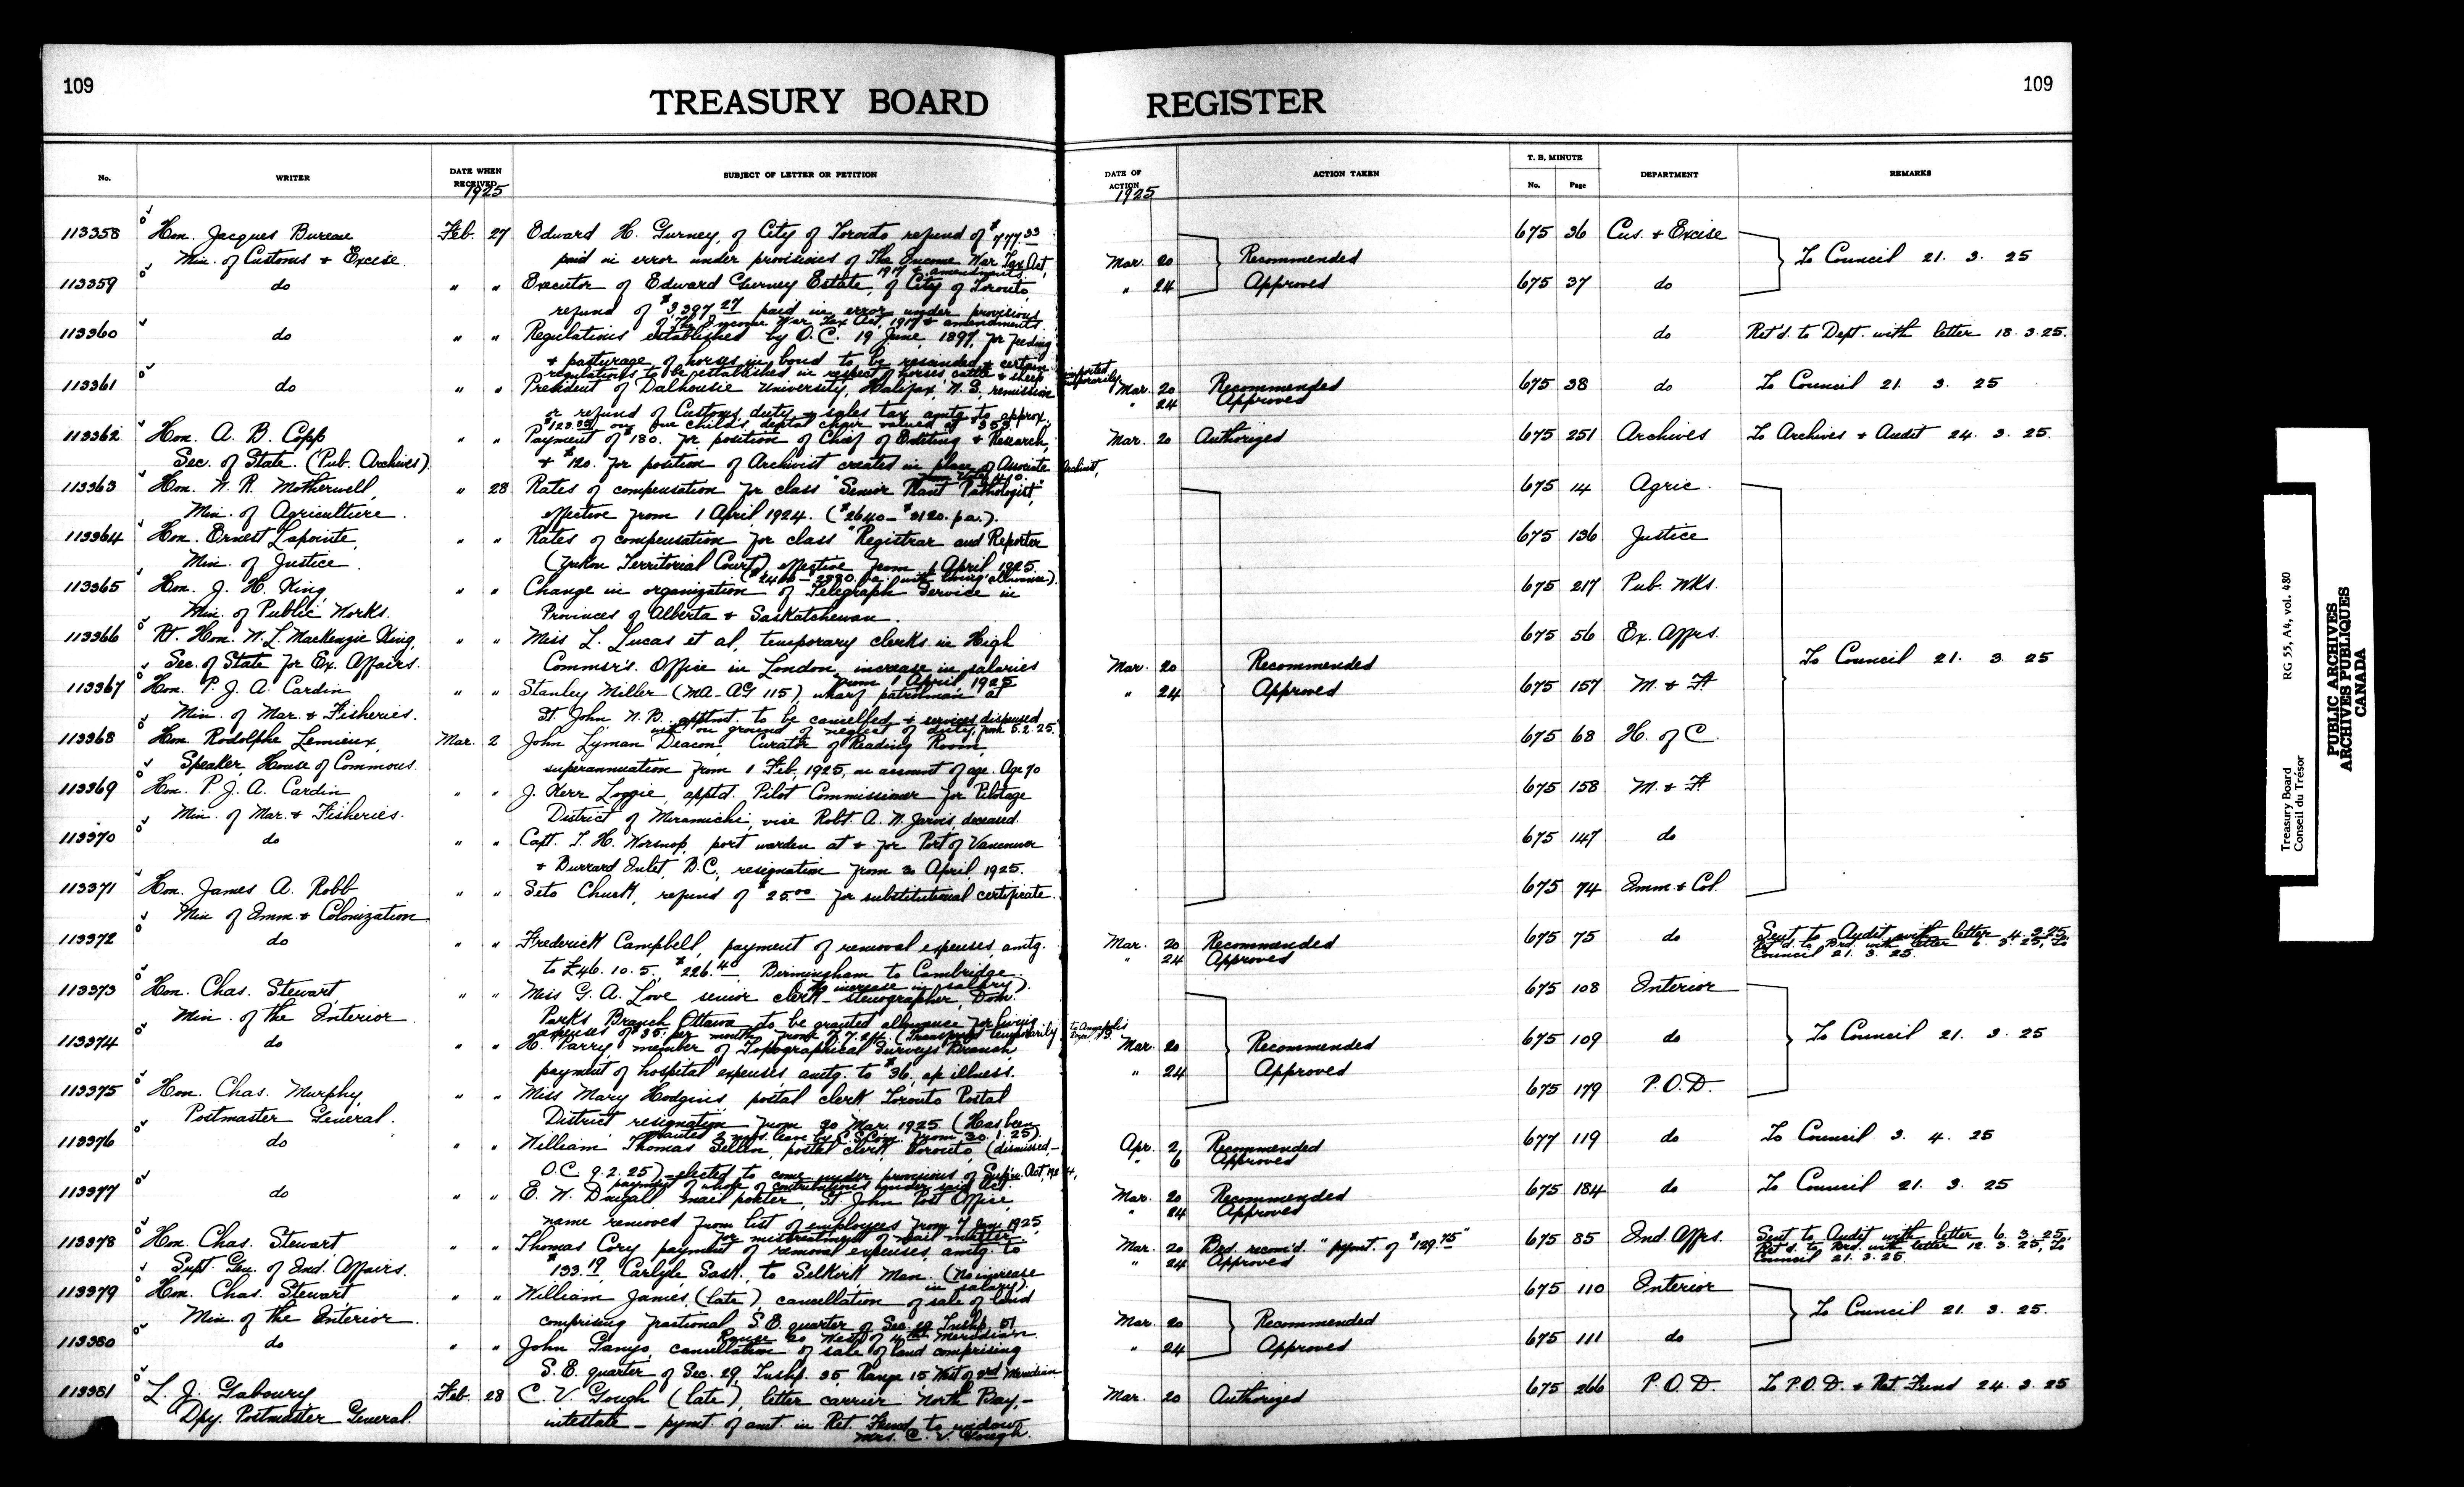 109
TREASURY BOARD REGISTER
109
No.
WRITER
DATE WHEN RECEIVED
1925
SUBJECT OF LETTER OR PETITION
DATE OF ACTION
1925
ACTION TAKEN
T. B. MINUTE
No.
Page
DEPARTMENT
REMARKS
113358 Hon. Jacques Bureau Feb. 27 Edward H. Gurney, of City of Toronto refund of $777.33 675 36 Cus. & Excise
Min. of Customs & Excise paid in error under provisions of The Income War Tax Act, Mar. 20 Recommended To Council 21. 3. 25
1917 & amendments
113359 do " " Executor of Edward Gurney Estate, of City of Toronto, " 24 Approved 675 37 do
refund of $3,397.27 paid in error under provisions
of The Income War Tax Act, 1917 & amendments.
113360 do " " Regulations established by O.C. 19 June, 1897, for feeding do Ret'd. to Dept. with letter 18. 3. 25.
& pasturage of horses in bond to be rescinded & certain
regulations to be established in respect of horses cattle & sheep imported temporarily
113361 do " " President of Dalhousie University, Halifax, N.S. remission Mar. 20 Recommended 675 38 do To Council 21. 3. 25
" 24 Approved
or refund of Customs duty & sales tax amtg. to approx.
on one child's dental chair valued at
113362 Hon. A. B. Copp " " Payment of $180. for position of Chief of Editing & Research, Mar. 20 Authorized 675 251 Archives To Archives & Audit 24. 3. 25.
Sec. of State. (Pub. Archives) & $120. for position of Archivist created in place of Associate Archivist,
113363 Hon. W. R. Motherwell, " 28 Rates of compensation for class "Senior Plant Pathologist," 675 14 Agric.
Min. of Agriculture. effective from 1 April 1924. ($2640 - $3120. p.a.).
113364 Hon. Ernest Lapointe, " " Rates of compensation for class "Registrar and Reporter 675 136 Justice
Min. of Justice. (Yukon Territorial Court) effective from 1 April 1925.
p.a. with living allowance).
113365 Hon. J. H. King, " " Change in organization of Telegraph Service in 675 217 Pub. Wks.
Min. of Public Works. Provinces of Alberta & Saskatchewan.
113366 Rt. Hon. W. L. Mackenzie King, " " Miss L. Lucas et al, temporary clerks in High 675 56 Ex. Affrs.
Sec. of State for Ex. Affairs. Commsr's. Office in London, increase in salaries Mar. 20 Recommended To Council 21. 3. 25
from 1 April, 1925
113367 Hon. P. J. A. Cardin " " Stanley Miller (MA-AG 115), wharf patrolman at " 24 Approved 675 157 M. & F.
Min. of Mar. & Fisheries. St. John N.B. apptmt. to be cancelled & services dispensed
with on ground of neglect of duty, from 5.2.25.
113368 Hon. Rodolphe Lemieux, Mar. 2 John Lyman Deacon, Curator of Reading Room, 675 68 H. of C.
Speaker, House of Commons. superannuation from 1 Feb. 1925, on account of age. Age 70
113369 Hon. P. J. A. Cardin " " J. Kerr Loggie, apptd. Pilot Commissioner for Pilotage 675 158 M. & F.
Min. of Mar. & Fisheries. District of Miramichi, vice Robt. A. N. Jarvis, deceased.
113370 do " " Capt. T. H. Worsnop, port warden at & for Port of Vancouver 675 147 do
& Burrard Inlet, B.C., resignation from 30 April, 1925.
113371 Hon. James A. Robb " " Seto Chuck, refund of $25.00 for substitutional certificate. 675 74 Imm. & Col.
Min of Imm. & Colonization
113372 do " " Frederick Campbell, payment of removal expenses, amtg. Mar. 20 Recommended 675 75 do Sent to Audit with letter 4. 3. 25.
" 24 Approved Ret'd. to Brd. with letter 6. 3. 25, To Council 21. 3. 25.
to £46. 10. 5. $226.40 Birmingham to Cambridge.
(No increase in salary).
113373 Hon. Chas. Stewart, " " Miss G. A. Love senior clerk-stenographer, Dom. 675 108 Interior
Min. of the Interior Parks Branch Ottawa to be granted allowance for living
expenses of $35. per month, from (Transferred temporarily to Annapolis
113374 do " " H. Parry, member of Topographical Surveys Branch, Mar. 20 Recommended 675 109 do To Council 21. 3. 25
payment of hospital expenses, amtg. to $36. ap. illness. " 24 Approved
113375 Hon. Chas. Murphy, " " Miss Mary Hodgins, postal clerk Toronto Postal 675 179 P.O.D.
Postmaster General. District resignation from 30 Mar. 1925. (Has been
granted 2 mos. leave by C.S.Com. from 30. 1. 25).
113376 do " " William Thomas Sellen, postal clerk, Toronto, (dismissed,- Apr. 2 Recommended 677 119 do To Council 3. 4. 25
" 6 Approved
O.C. 9. 2. 25) - elected to come under provisions of Sup'n. Act, 1924,
payment of whole of contributions under said Act.
113377 do " " E. W. Dingall, mail porter, St. John Post Office, Mar. 20 Recommended 675 184 do To Council 21. 3. 25
" 24 Approved
name removed from list of employees from 7 Jan. 1925,
for mistreatment of mail matter.
113378 Hon. Chas. Stewart " " Thomas Cory, payment of removal expenses, amtg. to Mar. 20 Brd. recom'd. "paymt. of $129.75" 675 85 Ind. Affrs. Sent to Audit with letter 6. 3. 25.
" 24 Approved Ret'd. to Brd. with letter 12. 3. 25, To Council 21. 3. 25.
Supt. Gen. of Ind. Affairs. $133.19, Carlyle, Sask., to Selkirk Man. (No increase
in salary).
113379 Hon. Chas. Stewart " " William James, (late), cancellation of sale of land 675 110 Interior
Min. of the Interior comprising fractional S.E. quarter of Sec. Tnshp. 51 Mar. 20 Recommended To Council 21. 3. 25.
Range 20 West of 4th Meridian.
113380 do " " John Ganyo, cancellation of sale of land comprising " 24 Approved 675 111 do
S.E. quarter of Sec. 29, Tnshp. 35, Range 15 West of 3rd Meridian
113381 L. J. Gaboury, Feb. 28 C. V. Gough (late), letter carrier North Bay,- Mar. 20 Authorized 675 266 P.O.D. To P.O.D. & Ret. Fund 24. 3. 25
Dpy. Postmaster General. intestate - pymt. of amt. in Ret. Fund to widow,
Mrs. C. V. Gough.
Treasury Board RG 55, A4, vol. 480
Conseil du Trésor
PUBLIC ARCHIVES
ARCHIVES PUBLIQUES
CANADA